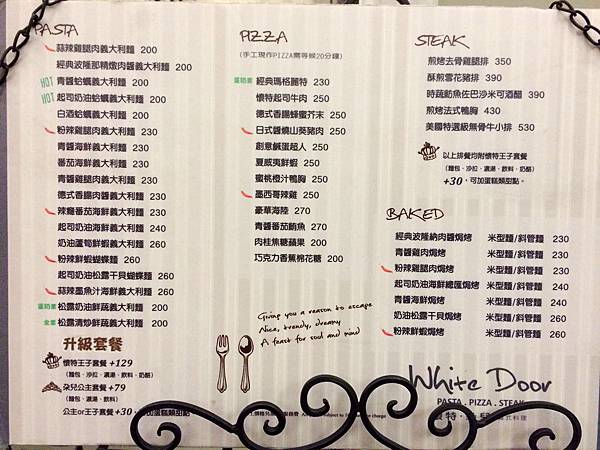 PASTA
蒜辣雞腿肉義大利麵 200
經典波隆那精燉肉醬義大利麵 200
HOT 青醬蛤蠣義大利麵 200
HOT 起司奶油蛤蠣義大利麵 200
白酒蛤蠣義大利麵 200
粉辣雞腿肉義大利麵 230
青醬海鮮義大利麵 230
番茄海鮮義大利麵 230
青醬雞腿肉義大利麵 230
德式香腸肉醬義大利麵 230
辣雞番茄海鮮義大利麵 230
起司奶油海鮮義大利麵 240
奶油蘆筍鮮蝦義大利麵 260
粉辣鮮蝦蝴蝶麵 260
起司奶油松露干貝蝴蝶麵 260
蒜辣墨魚汁海鮮義大利麵 260
蛋奶素 松露奶油鮮蔬義大利麵 200
全素 松露清炒鮮蔬義大利麵 200
升級套餐
懷特王子套餐 +129
(麵包、沙拉、濃湯、飲料、奶酪)
朵兒公主套餐 +79
(麵包、濃湯、飲料)
公主or王子套餐 +30，可加蛋糕類甜點
PIZZA
(手工現作PIZZA需等候20分鐘)
蛋奶素 經典瑪格麗特 230
懷特起司牛肉 250
德式香腸蜂蜜芥末 250
日式醬燒山葵豬肉 250
創意鹹蛋超人 250
夏威夷鮮蝦 250
蜜桃橙汁鴨胸 250
墨西哥辣雞 250
豪華海陸 270
青醬番茄鮪魚 270
肉桂焦糖蘋果 200
巧克力香蕉棉花糖 200
Giving you a reason to escape
Nice, trendy, dreamy
A feast for soul and mind
STEAK
煎烤去骨雞腿排 350
酥煎雪花豬排 390
時蔬鮪魚佐巴沙米可酒醋 390
煎烤法式鴨胸 430
美國特選級無骨牛小排 530
以上排餐均附懷特王子套餐
(麵包、沙拉、濃湯、飲料、奶酪)
+30，可加蛋糕類甜點。
BAKED
經典波隆納肉醬焗烤 米型麵/斜管麵 230
青醬雞肉焗烤 米型麵/斜管麵 230
粉辣雞肉焗烤 米型麵/斜管麵 230
起司奶油海鮮總匯焗烤 米型麵/斜管麵 240
青醬海鮮焗烤 米型麵/斜管麵 240
奶油松露干貝焗烤 米型麵/斜管麵 260
粉辣鮮蝦焗烤 米型麵/斜管麵 260
White Door
PASTA . PIZZA . STEAK